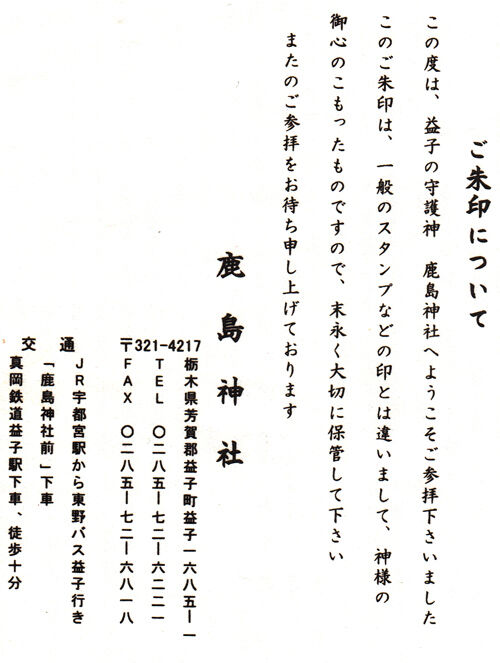 ご朱印について
この度は、益子の守護神　鹿島神社へようこそご参拝下さいました
このご朱印は、一般のスタンプなどの印とは違いまして、神様の
御心のこもったものですので、末永く大切に保管して下さい
またのご参拝をお待ち申し上げております
鹿島神社
〒321-4217
栃木県芳賀郡益子町益子一六八五ー一
ＴＥＬ　〇二八五ー七二ー六二二一
ＦＡＸ　〇二八五ー七二ー六八一八
交　通
ＪＲ宇都宮駅から東野バス益子行き
「鹿島神社前」下車
真岡鉄道益子駅下車、徒歩十分